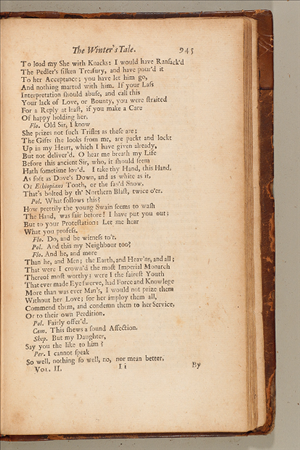 The Winter's Tale. 945
To load my She with Knacks: I would have Ransack'd
The Pedler's silken Treasury, and have pour'd it
To her Acceptance; you have let him go,
And nothing marted with him. If your Lass
Interpretation should abuse, and call this
Your lack of Love, or Bounty, you were straited
For a Reply at least, if you make a Care
Of happy holding her.
Flo. Old Sir, I know
She prizes not such Trifles as these are;
The Gifts she looks from me, are packt and lockt
Up in my Heart, which I have given already,
But not deliver'd. O hear me breath my Life
Before this ancient Sir, who, it should seem
Hath sometime lov'd. I take thy Hand, this Hand,
As soft as Dove's Down, and as white as it,
Or Ethiopians Tooth, or the fan'd Snow,
That's bolted by th' Northern Blast, twice o'er.
Pol. What follows this?
How prettily the young Swain seems to wash
The Hand, was fair before! I have put you out;
But to your Protestation: Let me hear
What you profess.
Flo. Do, and be witness to't.
Pol. And this my Neighbour too?
Flo. And he, and more
Than he, and Men; the Earth, and Heav'ns, and all;
That were I crown'd the most Imperial Monarch
Thereof most worthy; were I the fairest Youth
That ever made Eye swerve, had Force and Knowledge
More than was ever Man's, I would not prize them
Without her Love; for her imploy them all,
Commend them, and condemn them to her Service,
Or to their own Perdition.
Pol. Fairly offer'd.
Cam. This shews a sound Affection.
Shep. But my Daughter,
Say you the like to him?
Per. I cannot speak
So well, nothing so well, no, nor mean better,
Vol. II. I i By